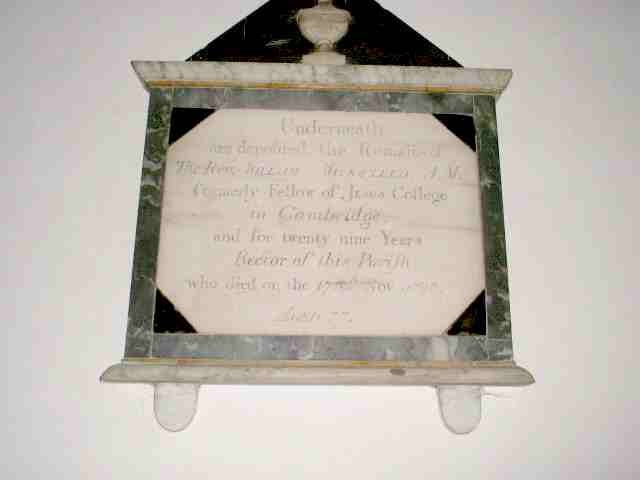 Underneath
are deposited the Remains of
The Rev. A.M.
formerly Fellow of Jesus College
in Cambridge,
and for twenty nine Years
Rector of this Parish
who died on the 17th Nov.
77.